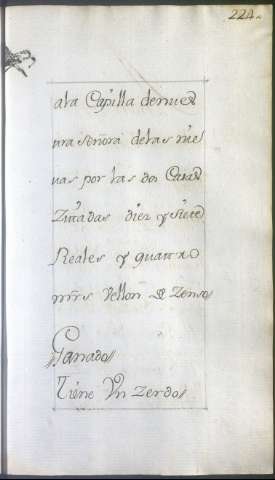 224
ala Capilla de nues
tra señora de las nie
uas por las dos Casas
Zittadas diez y siete
Reales y quattro
mrs vellon de Zenso
Ganados
Tiene Un Zerdo